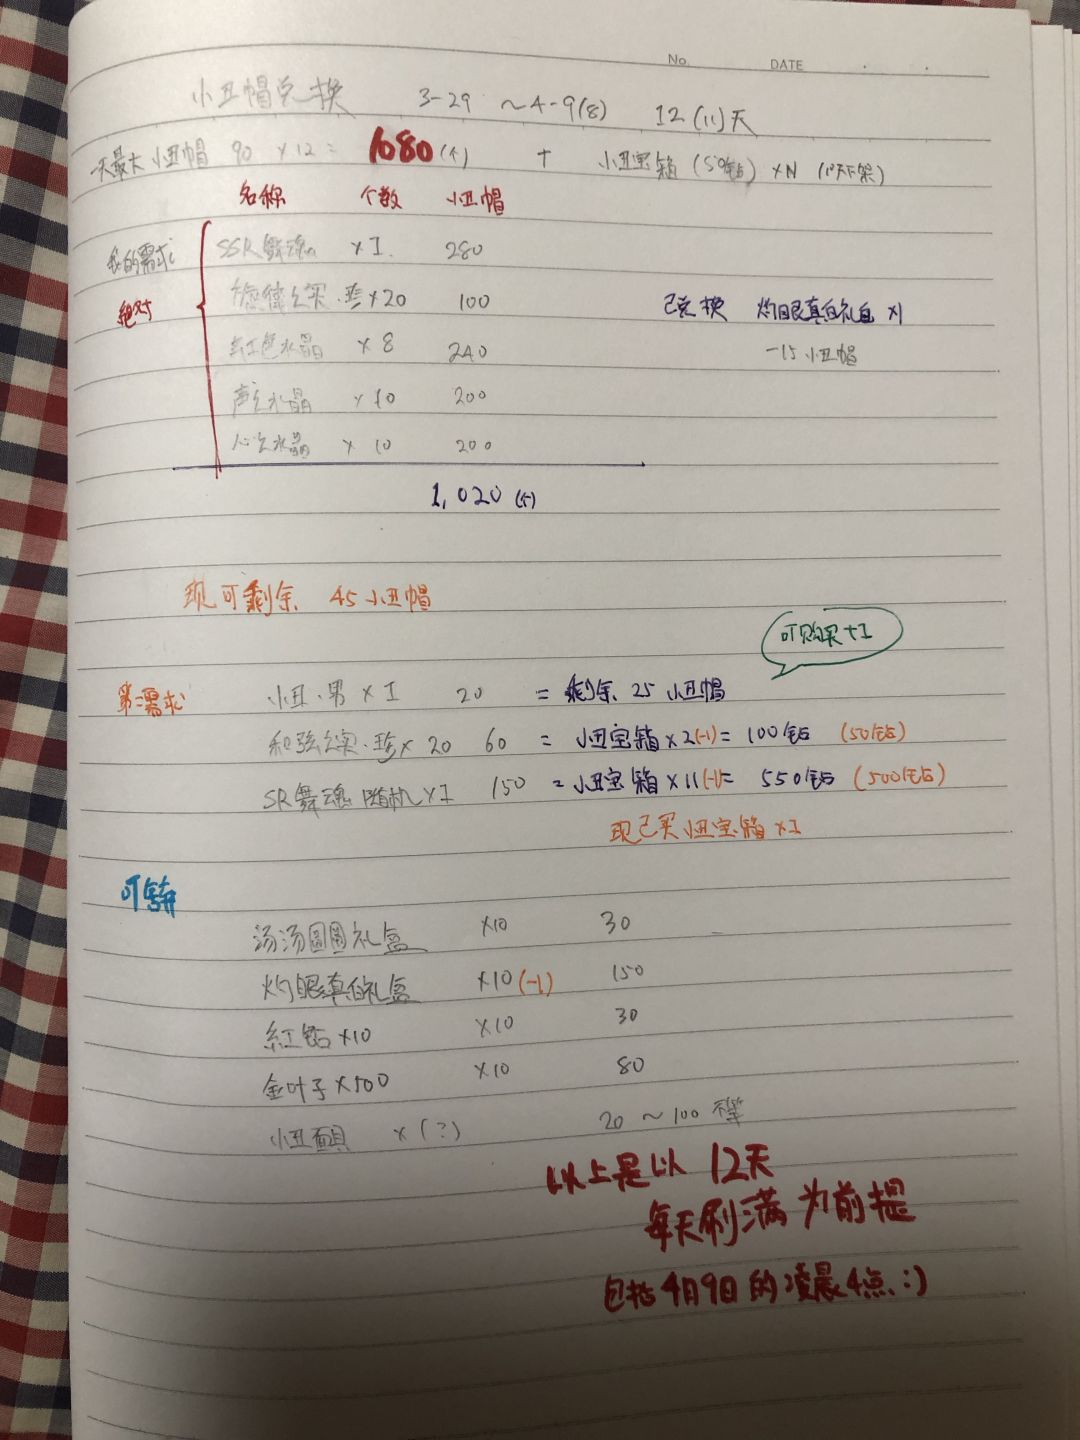 No. DATE
小丑帽兑换 3-29 ~4-9(8) 12(11)天
一天最大小丑帽 90 × 12 = 1080(个) + 小丑宝箱(50钻) ×N
名称 个数 小丑帽
我的需求 SSR舞魂 ×1 280
绝对 ×20 100 已兑换 灼眼真白礼包 ×1
红色水晶 ×8 240 -15小丑帽
声之水晶 ×10 200
心之水晶 × 10 200
1,020(个)
现可剩余 45小丑帽
可购买+1
第二需求 小丑·男 ×1 20 = 剩余 25 小丑帽
和弦之实·珍× 20 60 = 小丑宝箱×2(-1)= 100钻 (50钻)
SR舞魂随机×1 150 = 小丑宝箱 ×11(-1)= 550钻 (500钻)
现已买小丑宝箱 ×1
可弃
汤汤圆圆礼盒 ×10 30
灼眼真白礼盒 ×10(-1) 150
红钻×10 ×10 30
金叶子×500 ×10 80
小丑面具 ×(?) 20~100 不等
以上是以 12天
每天刷满为前提
包括4月9日的凌晨4点:)